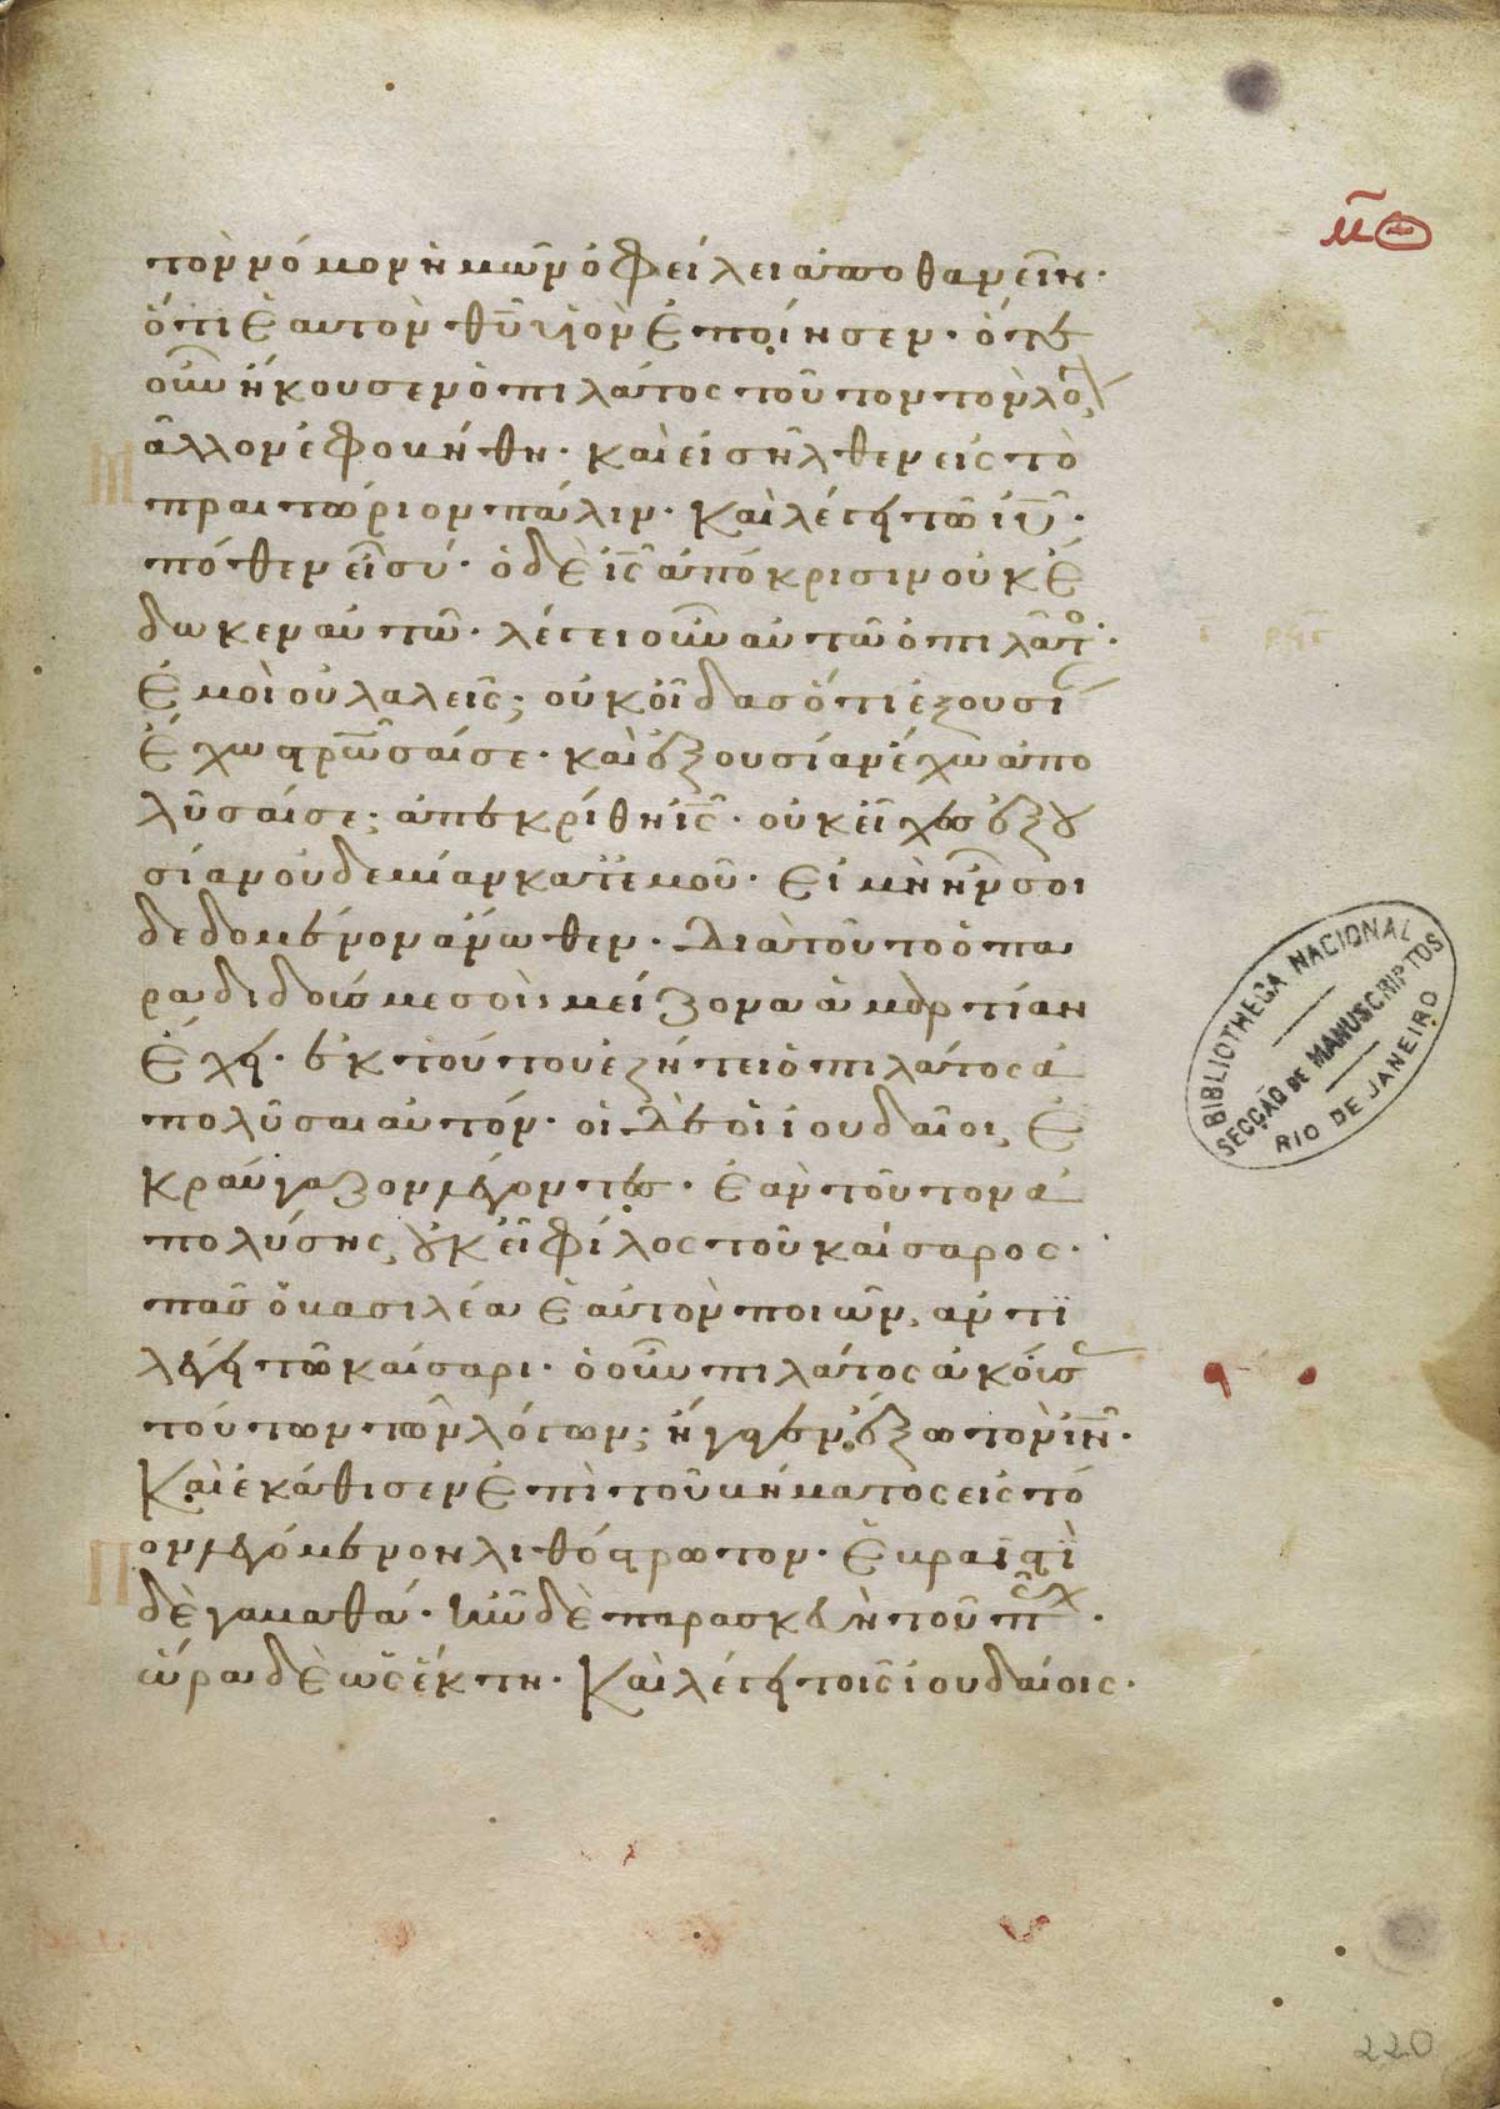 τὸν νόμον ἡμῶν ὀφείλει ἀποθανεῖν·
ὅτι ἑαυτὸν θῦ υἱὸν ἐποίησεν· ὅτε
οὖν ἤκουσεν ὁ πιλάτος τοῦτον τὸν λό
μᾶλλον ἐφοβήθη· καὶ εἰσῆλθεν εἰς τὸ
πραιτώριον πάλιν· Καὶ λέγει τῶ ιῦ·
πόθεν εἶ σύ· ὁ δὲ ις ἀπόκρισιν οὐκ ἔ
δωκεν αὐτῶ· λέγει οὖν αὐτῶ ὁ πιλᾶτο·
ἐμοὶ οὐ λαλεῖς; οὐκ οἶδας ὅτι ἐξουσί
ἔχω στρῶσαί σε· καὶ ἐξουσίαν ἔχω ἀπο
λῦσαί σε; ἀπεκρίθη ις· οὐκ εἶχες ἐξου
σίαν οὐδεμίαν κατ' ἐμοῦ· Εἰ μὴ ἦν σοι
δεδομένον ἄνωθεν· Διὰ τοῦτο ὁ πα
ραδιδούς με σοὶ μείζονα ἁμαρτίαν
ἔχει· ἐκ τούτου ἐζήτει ὁ πιλάτος ἀ
πολῦσαι αὐτόν· οἱ δὲ οἱ ἰουδαῖοι, ἔ
κραύγαζον λέγοντες· ἐὰν τοῦτον ἀ
πολύσης, οὐκ εἶ φίλος τοῦ καίσαρος·
πᾶς ὁ βασιλέα ἑαυτὸν ποιῶν, ἀντι
λέγει τῶ καίσαρι· ὁ οὖν πιλάτος ἀκούσ
τούτων τῶν λόγων; ἤγαγεν ἔξω τὸν ιν·
Καὶ ἐκάθισεν ἐπὶ τοῦ βήματος εἰς τό
ον λεγόμενον λιθόστρωτον· ἑβραϊστὶ
δὲ γαβαθά· ἦν δὲ παρασκευὴ τοῦ πσχ·
ὥρα δὲ ὡς ἕκτη· Καὶ λέγει τοῖς ἰουδαίοις·
BIBLIOTHECA NACIONAL
SECÇÃO DE MANUSCRIPTOS
RIO DE JANEIRO
220